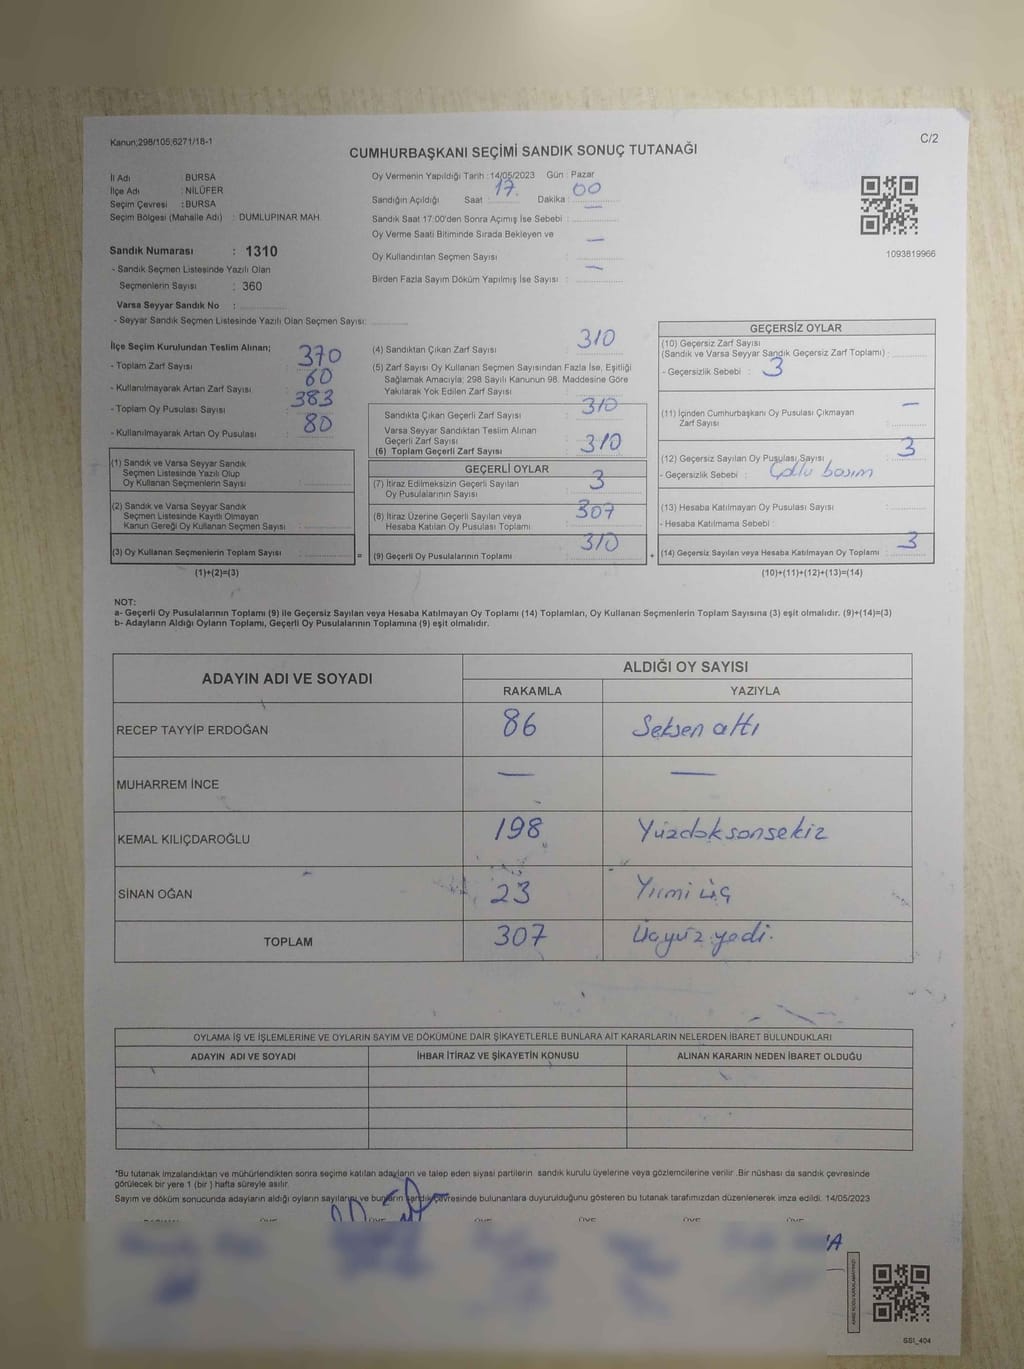 Kanun;298/105;6271/18-1
C/2
CUMHURBAŞKANI SEÇİMİ SANDIK SONUÇ TUTANAĞI
İl Adı : BURSA
İlçe Adı : NİLÜFER
Seçim Çevresi : BURSA
Seçim Bölgesi (Mahalle Adı) : DUMLUPINAR MAH.
Sandık Numarası : 1310
- Sandık Seçmen Listesinde Yazılı Olan
Seçmenlerin Sayısı : 360
Varsa Seyyar Sandık No :
- Seyyar Sandık Seçmen Listesinde Yazılı Olan Seçmen Sayısı:
Oy Vermenin Yapıldığı Tarih : 14/05/2023 Gün : Pazar
Sandığın Açıldığı Saat : 17. Dakika : 00
Sandık Saat 17:00'den Sonra Açımış İse Sebebi : —
Oy Verme Saati Bitiminde Sırada Bekleyen ve
Oy Kullandırılan Seçmen Sayısı : —
Birden Fazla Sayım Döküm Yapılmış İse Sayısı : —
1093819966
İlçe Seçim Kurulundan Teslim Alınan;
- Toplam Zarf Sayısı : 370
- Kullanılmayarak Artan Zarf Sayısı : 60
- Toplam Oy Pusulası Sayısı : 383
- Kullanılmayarak Artan Oy Pusulası : 80
(1) Sandık ve Varsa Seyyar Sandık
Seçmen Listesinde Yazılı Olup
Oy Kullanan Seçmenlerin Sayısı :
(2) Sandık ve Varsa Seyyar Sandık
Seçmen Listesinde Kayıtlı Olmayan
Kanun Gereği Oy Kullanan Seçmen Sayısı :
(3) Oy Kullanan Seçmenlerin Toplam Sayısı :
(1)+(2)=(3)
(4) Sandıktan Çıkan Zarf Sayısı : 310
(5) Zarf Sayısı Oy Kullanan Seçmen Sayısından Fazla İse, Eşitliği
Sağlamak Amacıyla; 298 Sayılı Kanunun 98. Maddesine Göre
Yakılarak Yok Edilen Zarf Sayısı :
Sandıkta Çıkan Geçerli Zarf Sayısı : 310
Varsa Seyyar Sandıktan Teslim Alınan
Geçerli Zarf Sayısı :
(6) Toplam Geçerli Zarf Sayısı : 310
GEÇERLİ OYLAR
(7) İtiraz Edilmeksizin Geçerli Sayılan
Oy Pusulalarının Sayısı : 3
(8) İtiraz Üzerine Geçerli Sayılan veya
Hesaba Katılan Oy Pusulası Toplamı : 307
= (9) Geçerli Oy Pusulalarının Toplamı : 310 +
GEÇERSİZ OYLAR
(10) Geçersiz Zarf Sayısı
(Sandık ve Varsa Seyyar Sandık Geçersiz Zarf Toplamı) :
- Geçersizlik Sebebi : 3
(11) İçinden Cumhurbaşkanı Oy Pusulası Çıkmayan
Zarf Sayısı : —
(12) Geçersiz Sayılan Oy Pusulası Sayısı : 3
- Geçersizlik Sebebi : Çoklu basım
(13) Hesaba Katılmayan Oy Pusulası Sayısı :
- Hesaba Katılmama Sebebi :
(14) Geçersiz Sayılan veya Hesaba Katılmayan Oy Toplamı : 3
(10)+(11)+(12)+(13)=(14)
NOT:
a- Geçerli Oy Pusulalarının Toplamı (9) ile Geçersiz Sayılan veya Hesaba Katılmayan Oy Toplamı (14) Toplamları, Oy Kullanan Seçmenlerin Toplam Sayısına (3) eşit olmalıdır. (9)+(14)=(3)
b- Adayların Aldığı Oyların Toplamı, Geçerli Oy Pusulalarının Toplamına (9) eşit olmalıdır.
ADAYIN ADI VE SOYADI ALDIĞI OY SAYISI
RAKAMLA YAZIYLA
RECEP TAYYİP ERDOĞAN 86 Seksen altı
MUHARREM İNCE — —
KEMAL KILIÇDAROĞLU 198 Yüzdoksonsekiz
SİNAN OĞAN 23 Yirmi üç
TOPLAM 307 Üçyüz yedi.
OYLAMA İŞ VE İŞLEMLERİNE VE OYLARIN SAYIM VE DÖKÜMÜNE DAİR ŞİKAYETLERLE BUNLARA AİT KARARLARIN NELERDEN İBARET BULUNDUKLARI
ADAYIN ADI VE SOYADI İHBAR İTİRAZ VE ŞİKAYETİN KONUSU ALINAN KARARIN NEDEN İBARET OLDUĞU
*Bu tutanak imzalandıktan ve mühürlendikten sonra seçime katılan adayların ve talep eden siyasi partilerin sandık kurulu üyelerine veya gözlemcilerine verilir .Bir nüshası da sandık çevresinde
görülecek bir yere 1 (bir ) hafta süreyle asılır.
Sayım ve döküm sonucunda adayların aldığı oyların sayılarını ve bunların sandık çevresinde bulunanlara duyurulduğunu gösteren bu tutanak tarafımızdan düzenlenerek imza edildi. 14/05/2023
ÜYE ÜYE ÜYE ÜYE ÜYE
SSI_404